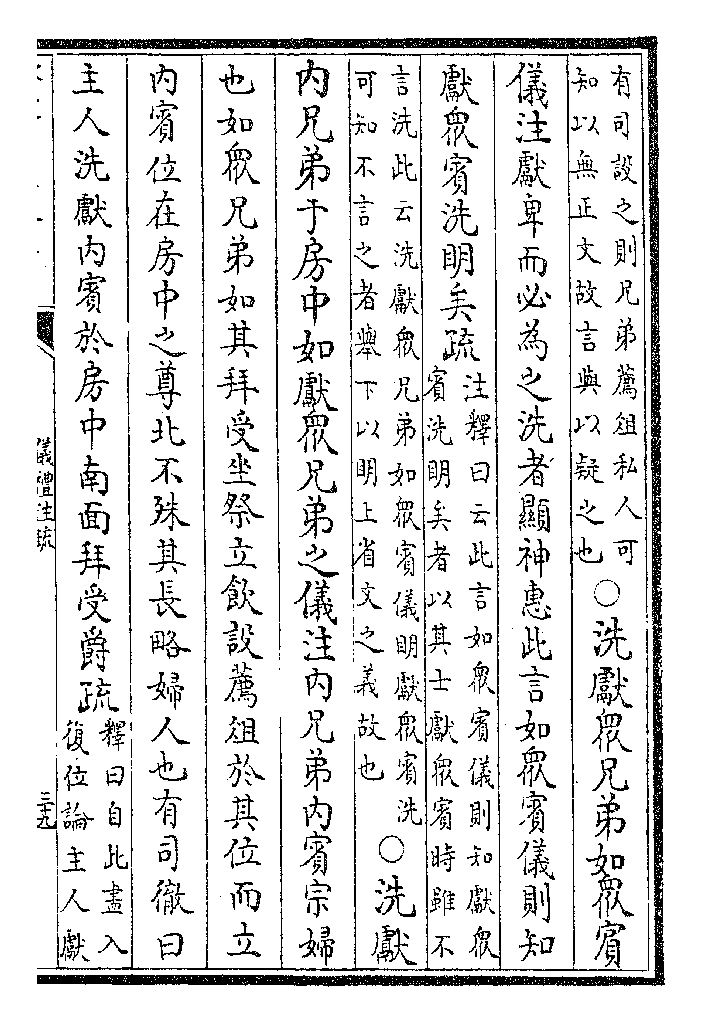 有司設之則兄弟薦俎私人可
知以無正文故言與以疑之也
○洗獻眾兄弟如眾賓
儀注獻卑而必為之洗者顯神惠此言如眾賓儀則知
獻眾賓洗明矣疏
注釋曰云此言如眾賓儀則知獻眾
賓洗明矣者以其士獻眾賓時雖不
言洗此云洗獻眾兄弟如眾賓儀明獻眾賓洗
可知不言之者舉下以明上省文之義故也
○洗獻
內兄弟于房中如獻眾兄弟之儀注內兄弟內賓宗婦
也如眾兄弟如其拜受坐祭立飲設薦俎於其位而立
內賓位在房中之尊北不殊其長略婦人也有司徹曰
主人洗獻內賓於房中南面拜受爵疏
釋曰自此盡入
復位論主人獻
儀禮注疏